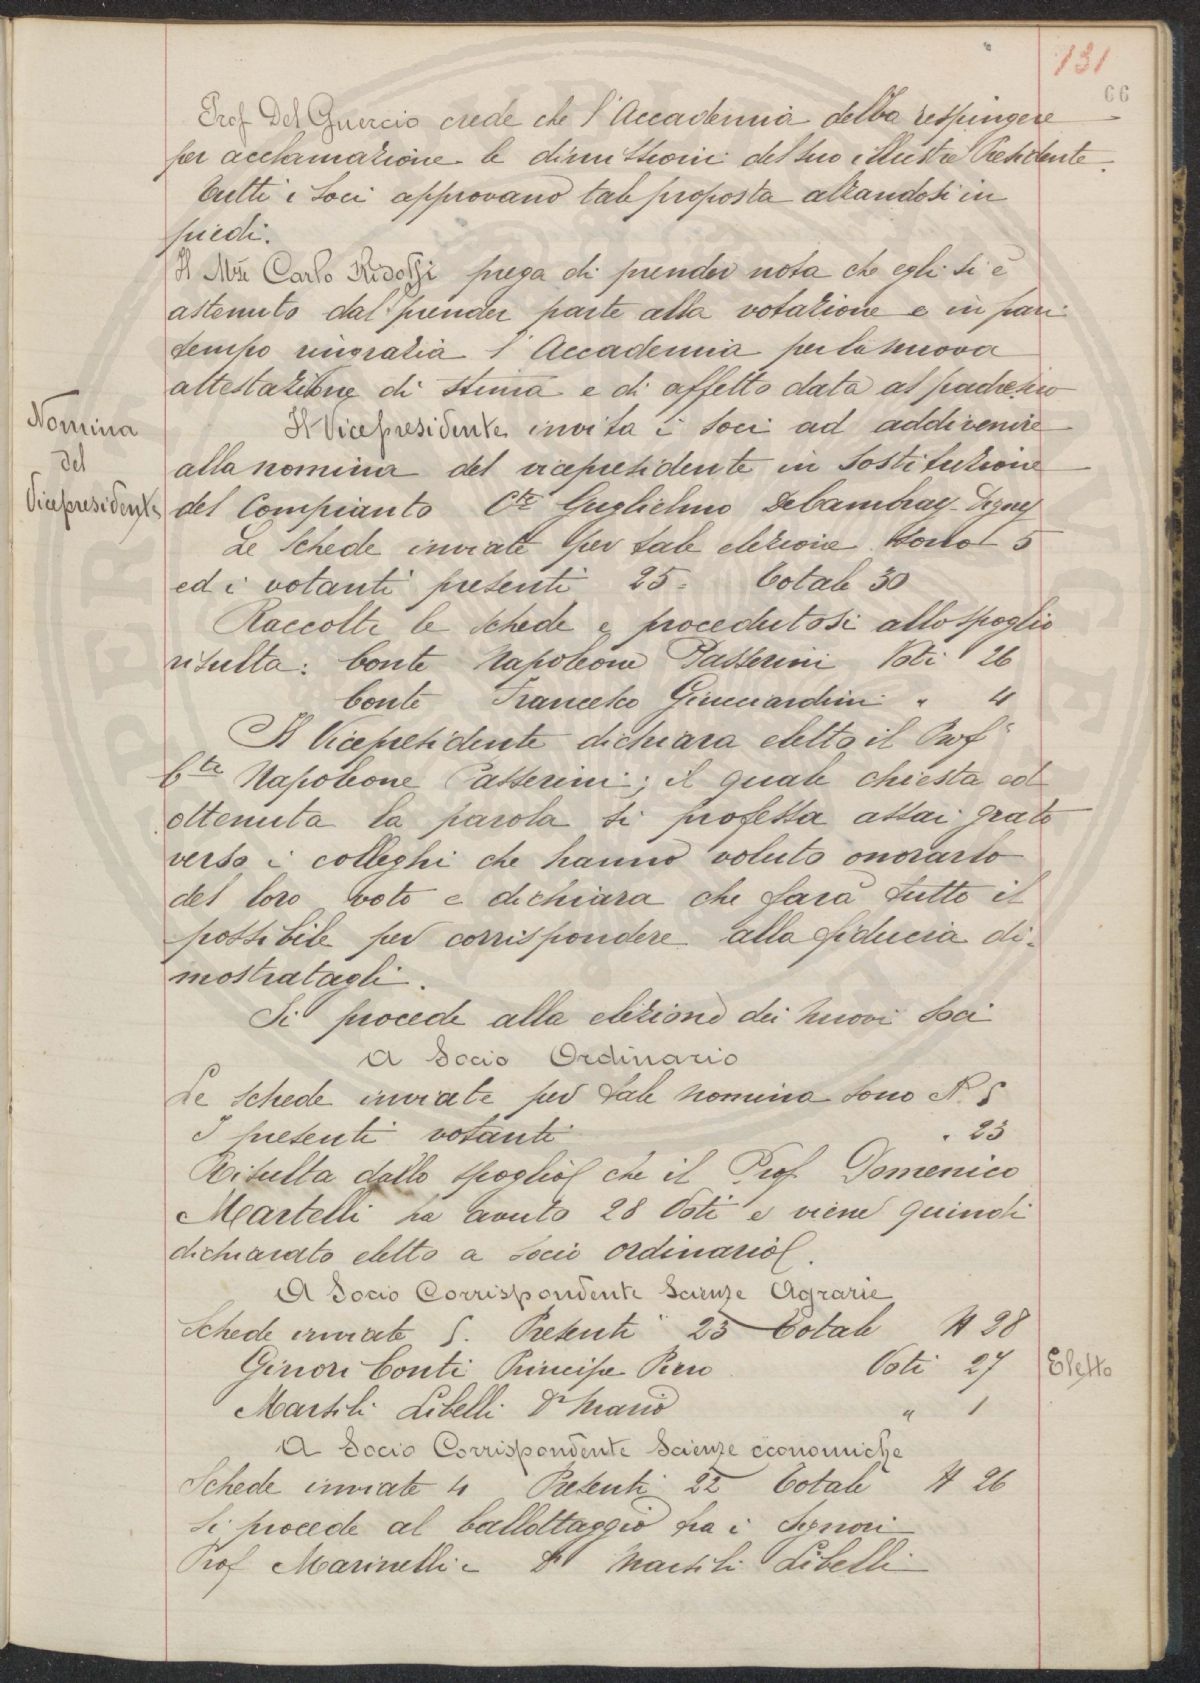 131
66
Prof Del Guercio crede che l'Accademia debba respingere
per acclamazione le dimissioni del suo illustre Presidente.
Tutti i Soci approvano tale proposta alzandosi in
piedi.
Il Mse Carlo Ridolfi prega di prender nota che egli si è
astenuto dal prender parte alla votazione e in pari
tempo ringrazia l'Accademia per la nuova
attestazione di stima e di affetto data al padre suo
Nomina
del
Vicepresidente
Il Vicepresidente invita i Soci ad addivenire
alla nomina del vicepresidente in sostituzione
del Compianto Cte Guglielmo Decambray-Digny
Le Schede inviate per tale elezione sono 5
ed i votanti presenti 25. Totale 30
Raccolte le schede e procedutosi allo spoglio
risulta: Conte Napoleone Passerini Voti 26
Conte Francesco Guicciardini " 4
Il Vicepresidente dichiara eletto il Prof
Cte Napoleone Passerini; il quale chiesta ed
ottenuta la parola si professa assai grato
verso i colleghi che hanno voluto onorarlo
del loro voto e dichiara che farà tutto il
possibile per corrispondere alla fiducia di-
mostratagli.
Si procede alla elezione dei nuovi Soci
A Socio Ordinario
Le schede inviate per tale nomina sono N. 5
I presenti votanti " 23
Risulta dallo spoglio che il Prof. Domenico
Martelli ha avuto 28 Voti e viene quindi
dichiarato eletto a socio ordinario.
A Socio Corrispondente Scienze Agrarie
Schede inviate 5. Presenti 23 Totale N 28
Ginori Conti Principe Piero Voti 27 Eletto
Marsili Libelli Dr Mario " 1
A Socio Corrispondente Scienze economiche
Schede inviate 4 Presenti 22 Totale N 26
Si procede al ballottaggio fra i Signori
Prof Marinelli e Dr Marsili Libelli